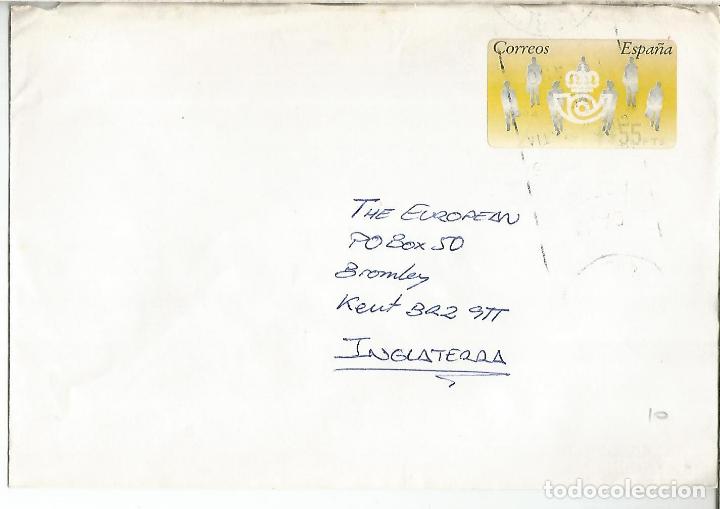 Correos España
55 PTS
THE EUROPEAN
PO Box 50
Bromley
Kent BR2 9TT
INGLATERRA
10
todocoleccion.net